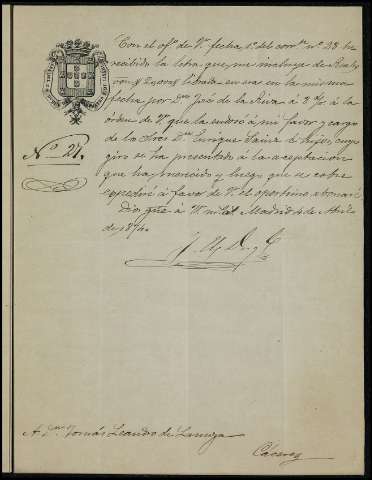 Con el of.º de V. fecha 1º del corr.te nº 23 he
recibido la letra que me incluye de Reales
von librada en esa en la misma
fecha por D.n José de la Riva á 8 á la
órden de V. que la endosó á mi favor y cargo
de los Sres D.n Enrique Sainz é hijos, cuyo
giro se ha presentado á la aceptacion
que ha merecido y luego que se cobre
espediré á favor de V. el oportuno abonaré
Dios gue á V. m.s a.s Madrid 4 de Abril
de 187
Nº 27.
A D.n Tomás Leandro de Lamuza
Cáceres